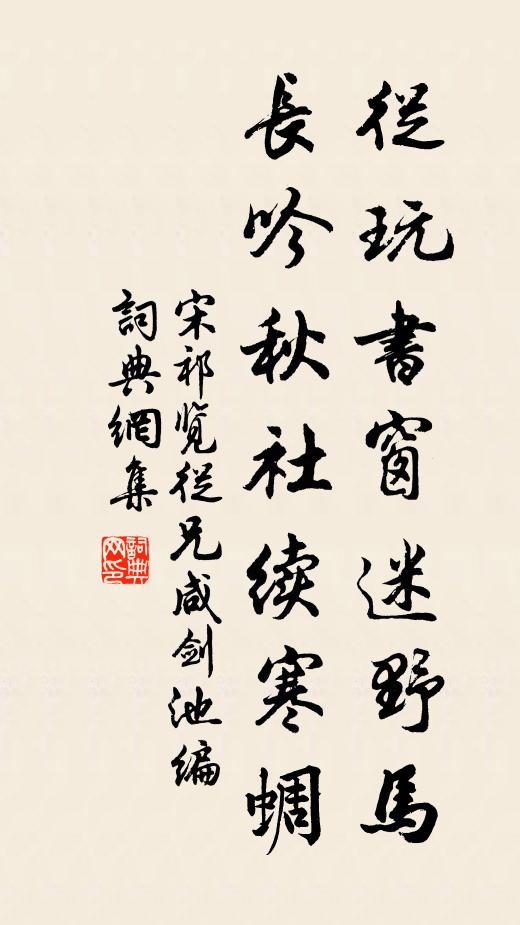 從玩書窗迷野馬
長吟秋社续寒蜩
宋祁覽從兄咸劍池編
詞典網集
詞典
网印